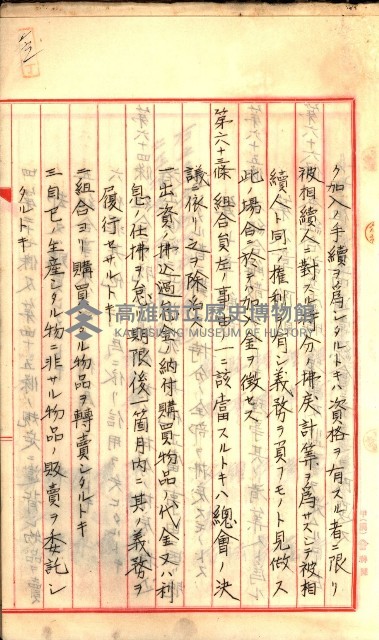 ク加入ノ手續ヲ爲シタルトキハ資格ヲ有スル者ニ限リ
被相續人ニ對スル持分ノ拂戾計算ヲ爲サスシテ被相
續人ト同一權利ヲ有シ義務ヲ負フモノト見做ス
此ノ場合ニ於テハ加入金ヲ徵セス
第六十三條 組合員左ノ事項ノ一ニ該當スルトキハ總會ノ決
議ニ依リ之ヲ除名ス
一出資ノ拂込過怠金ノ納付購買物品ノ代金又ハ利
息ノ仕拂ヲ怠リ期限後一箇月内ニ其ノ義務ヲ
履行セサルトキ
二組合ヨリ購買シタル物品ヲ轉賣シタルトキ
三自己ノ生産シタル物ニ非サル物品ノ販賣ヲ委託シ
タルトキ
高雄市立歷史博物館
KAOHSIUNG MUSEUM OF HISTORY